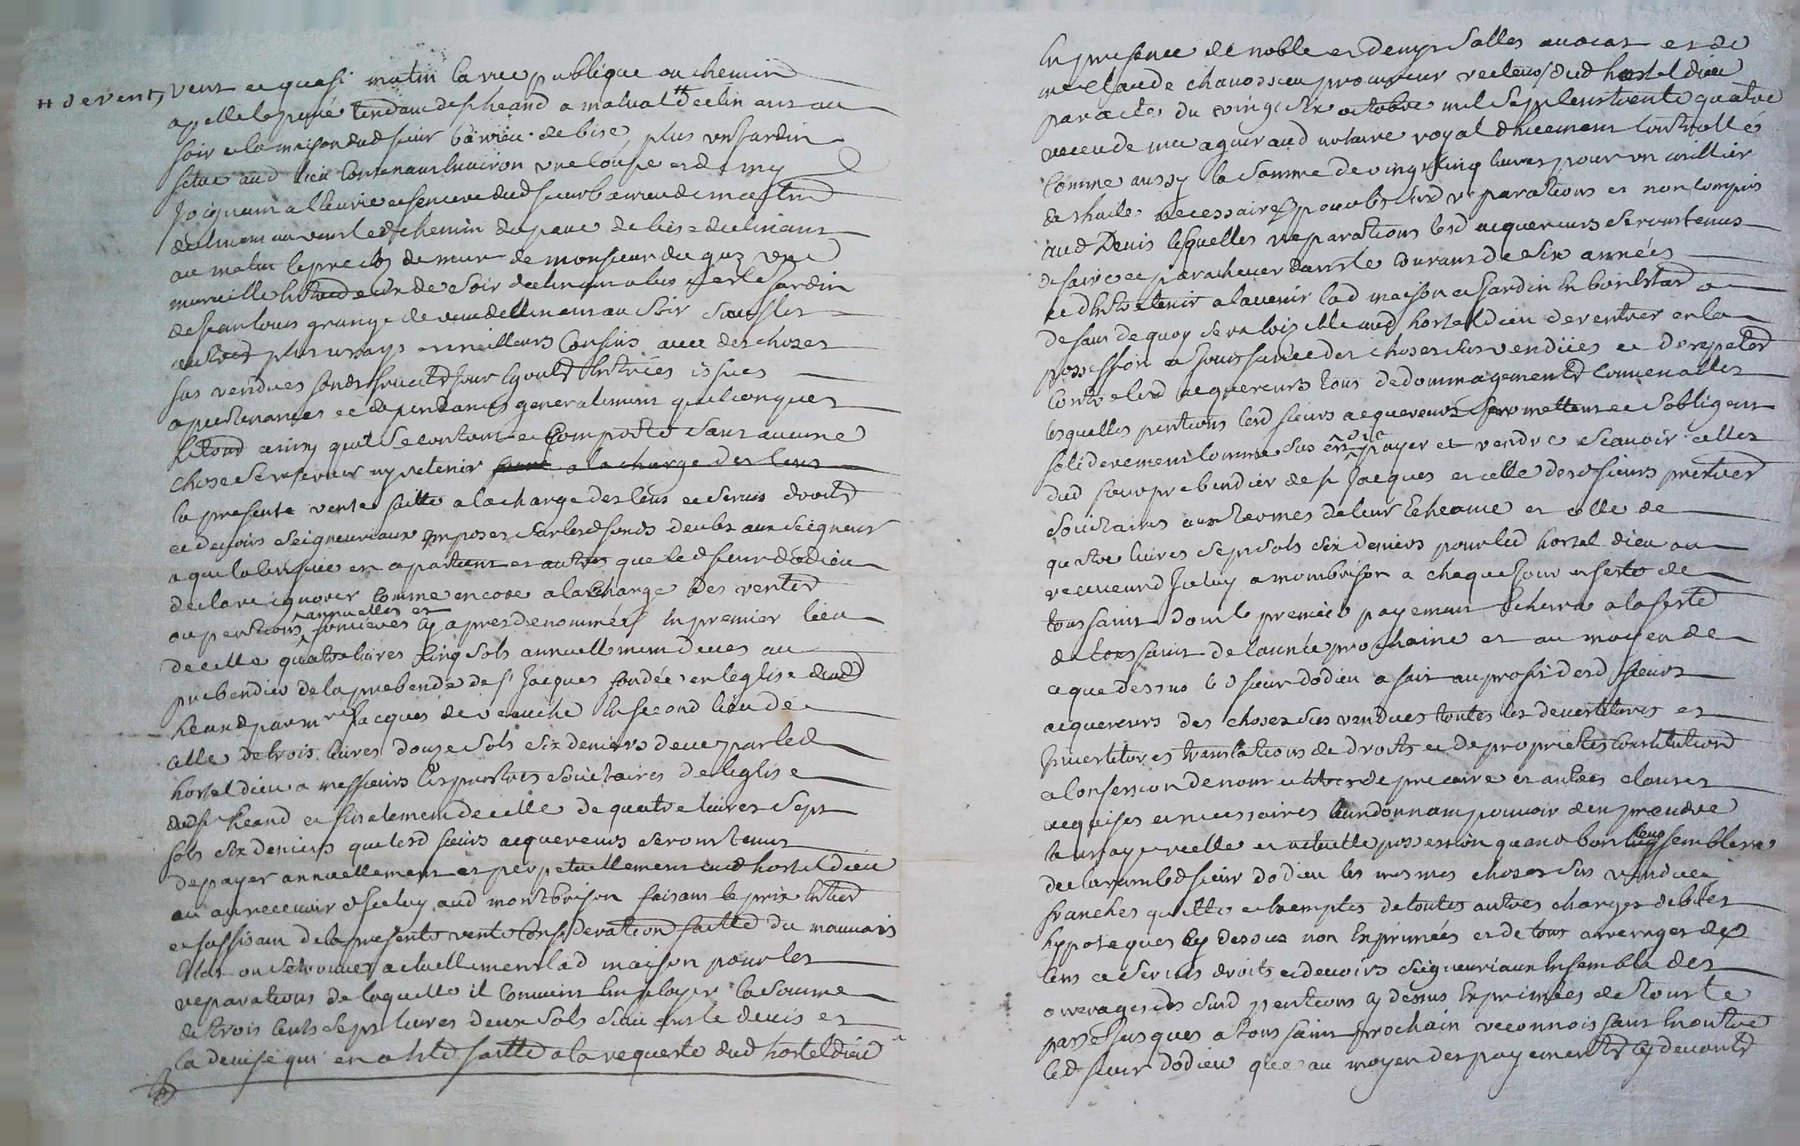 # de vent,
vent et quasi matin la rue publique ou chemin
apellé le puré tendant de st heand a malval # declinant au
soir et la maison dud sieur bârrieu de bise, plus un jardin
situé aud lieu contenant environ une coupe et demy
joignant a l'ecurie et fenière dud sieur barrieu de matin
declinant au vent led chemin du pavé de bise declinant
au matin le pred de mur de monsieur du guz une
muraille entredeux de soir declinant a bise et le jardin
de jean louis grange de vent declinant au soir sauf les
autres plus vrays et meilleurs confins avec des choses
sus vendues fonds fruits jours egouts entrées issues
apartenances et dependances generalement quelconques
le tout ainsy quil se contient et comporte sans aucune
chose se reserver ny retenir a la charge des cens
la presente vente faitte a la charge des cens et servis droits
et devoirs seigneuriaux imposés sur lesd fonds deubs aux seigneurs
a qui la censive en apartient et autres que led sieur dodieu
declare ignorer comme encore a la charge des rentes
ou pentions annuelles et foncieres cy apres denommées en premier lieu
de celle quatre livres cinq sols annuellement deues au
prebendier de la prebende de st jacques fondée en l'eglise dud
st heand par mre jacques de en second lieu de
celle de trois livres douse sols six deniers deues par led
hostel dieu a messieurs les prestres societaires de l'eglise
dud st heand et finalement de celle de quatre livres sept
sols six deniers que lesd sieurs acquereurs seront tenus
de payer annuellement et perpetuellement aud hostel dieu
ou au recevoir d'iceluy aud montbrison faisant le prix entier
et suffisant de la presente vente consideration faitte du mauvais
estat ou se trouve actuellement lad maison pour les
reparations de laquelle il convient employer la somme
de trois cents sept livres deux sols suivant le devis et
la devise qui en a été faitte a la requeste dud hostel dieu
en presence de noble et denys salles avocat et de
me claude chavassieu procureur recteurs dud hostel dieu
par acte du vingt six octobre mil sept cens trente quatre
receu de me aguiraud notaire royal duement controllé
comme aussy la somme de vingt cinq livres pour un millier
de thuiles necessaires pour lesd reparations et non compris
aud devis lesquelles reparations lesd acquereurs seront tenus
de faire et parachever dans le courant de six années
et d'entretenir a l'avenir lad maison et jardin en bon estat a
defaut de quoy sera loisible aud hostel dieu de rentrer en la
possession et jouissance des choses sus vendües et de repeter
contre lesd acquereurs tous dedommagements convenables
lesquelles pentions lesd sieurs acquereurs promettent et s'obligent
soliderement comme sus est dit payer et rendre scavoir celles
dud sieur prebendier de st jacques et celle desd sieurs prestres
societaires aux termes de leur echeance et celle de
quatre livres sept sols six deniers pour led hostel dieu au
receveur d'iceluy a montbrison a chaque jour et feste de
toussaint dont le premier payement echerra a la feste
de toussaint de l'année prochaine et au moyen de
ce que dessus led sieur dodieu a fait au profit desd sieurs
acquereurs des choses sus vendues toutes les devestitures et
investitures translations de droits et de proprietés constitution
et confession de nom et titre de precaire et autres clauses
requises et necessaires leur donnant pouvoir d'en prendre
la vraye reelle et actuelle possession quand bon leur semblera
declarant led sieur dodieu les mesmes choses sus vendues
franches quittes et exemptes de toutes autres charges debtes
hypoteques cy dessus non exprimées et de tous arrerages des
cens et servis droits et devoirs seigneuriaux ensemble des
arrerages des susd pentions cy dessus exprimées de tout le
passé jusques a toussaint prochain reconnoissant en outre
led sieur dodieu que au moyen des payements cy devant